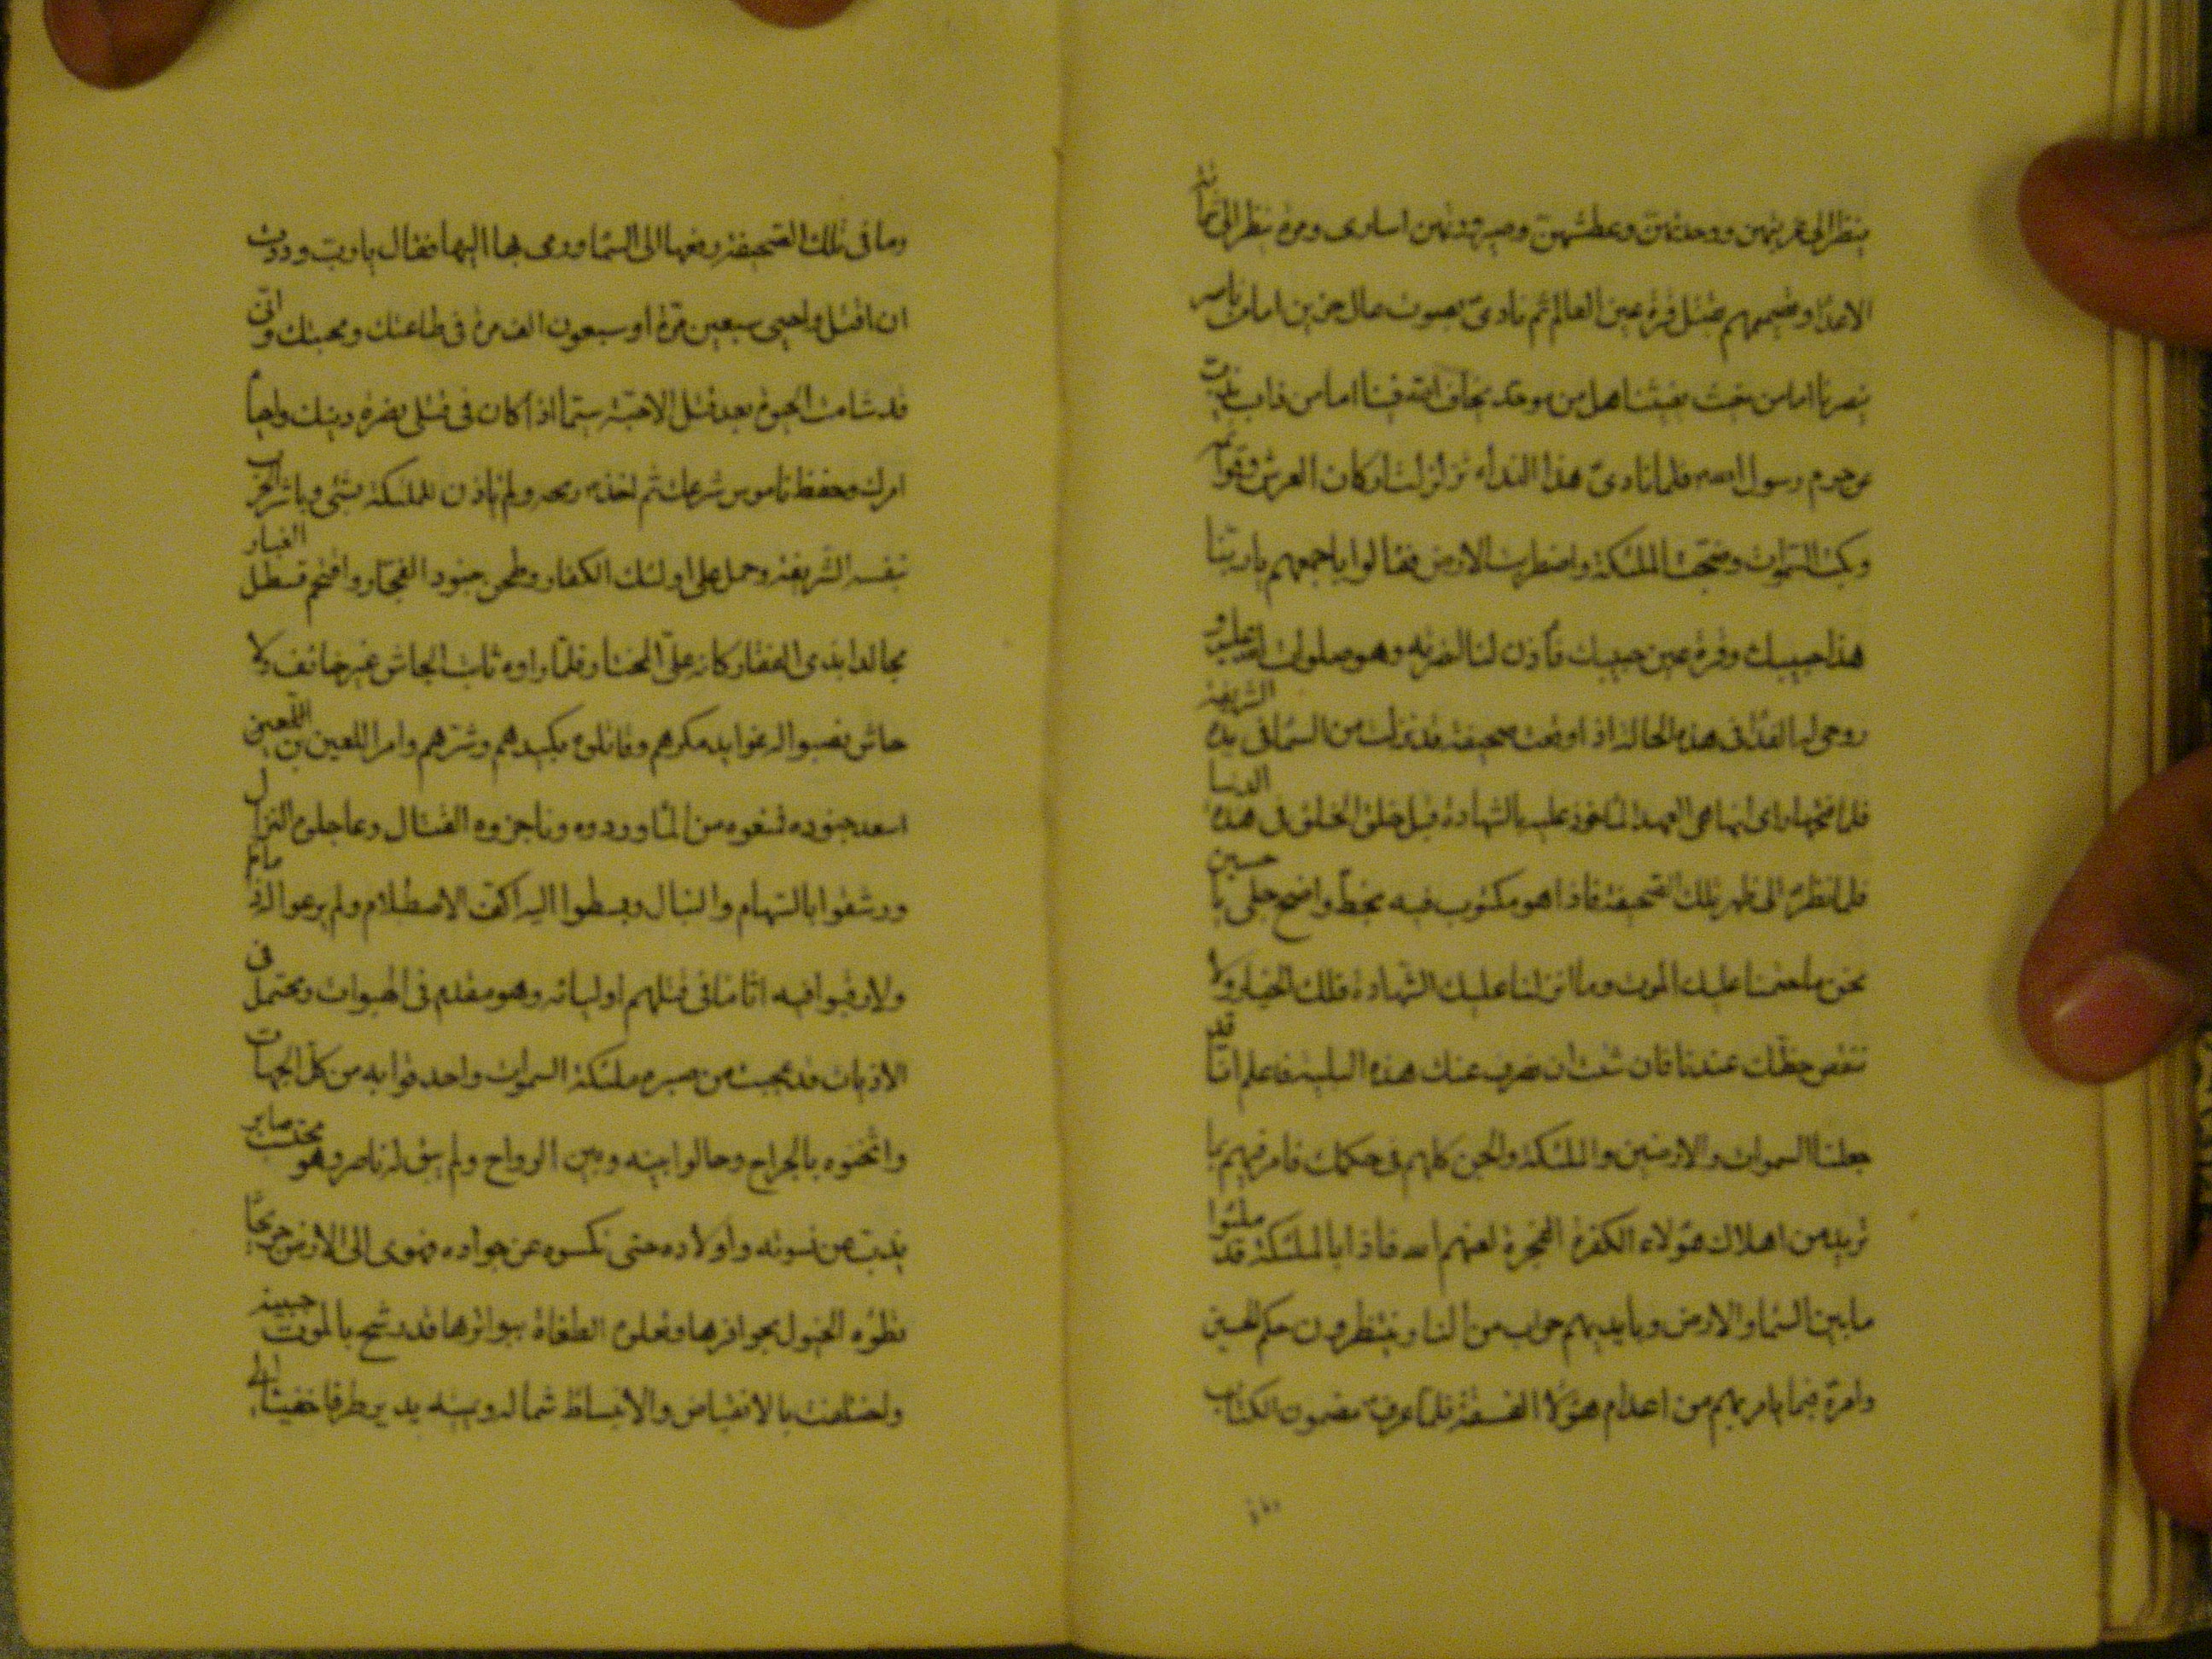 ينظر الى غربتهن ووحدتهن وعطشهن وصيرورتهن اسارى ومرة ينظر الى شماتة
الاعداء وتصميمهم بقتل قرة عين العالم ثم نادى بصوت عال حزين اما من ناصر
ينصرنا اما من مغيث يغيثنا هل من موحد يخاف الله فينا اما من ذاب يذب
عن حرم رسول الله فلما نادى هذا النداء تزلزلت اركان العرش وقوائمه
وبكت السموات وضجت الملئكة واضطربت الارض فقالوا باجمعهم يا ربنا
هذا حبيبك وقرة عين حبيبك فأذن لنا لنصرته وهو صلوات الله عليه و
روحي له الفداء في هذه الحالة اذا وقعت صحيفة قد نزلت من السماء في يده الشريفة
فلما فتحها وراى انها هي العهد المأخوذ عليه بالشهادة قبل خلق الخلق في هذه الدنيا
فلما نظر الى ظهر تلك الصحيفة فاذا هو مكتوب فيه بخط واضح جلي يا حسين
نحن ما حتمنا عليك الموت وما انزلنا عليك الشهادة فلك الخيار ولا
ننقص حظك عندنا فان شئت ان نصرف عنك هذه البلية فاعلم انا قد
جعلنا السموات والارضين والملئكة والجن كلهم في حكمك فامر فيهم بما
تريد من اهلاك هؤلاء الكفرة الفجرة لعنهم الله فاذا بالملئكة قد ملئوا
ما بين السماء والارض وبايديهم حراب من النار وينتظرون حكم الحسين
وامره فيما يامرهم من اعدام هؤلاء الفسقة فلما عرف مضمون الكتاب
وما في تلك الصحيفة رفعها الى السماء ورمى بها اليها فقال يا رب وددت
ان اقتل واحيى سبعين مرة او سبعون الف مرة في طاعتك ومحبتك واني
قد سئمت الحيوة بعد قتل الاحبة سيما اذا كان في قتلي نصرة دينك واحياء
امرك وحفظ ناموس شرعك ثم اخذ رمحه ولم ياذن للملئكة بشئ وباشر الحرب
بنفسه الشريفة وحمل على اولئك الكفار وطحن جنود الفجار واقتحم قسطل الغبار
مجالدا بذي الفقار كانه علي المختار فلما راوه ثابت الجاش غير خائف ولا
خاش نصبوا له غوايل مكرهم وقاتلوه بكيدهم وشرهم وامر اللعين بن اللعين
اسعد جنوده فمنعوه من الماء ووروده وناجزوه القتال وعاجلوه النزال
ورشقوا بالسهام والنبال وبسطوا اليه اكف الاصطلام ولم يرعوا له ذماما
ولا رقبوا فيه اثاما في قتلهم اوليائه وهو مقدم في الهبوات ومحتمل
الاذيات قد عجبت من صبره ملئكة السموات واحدقوا به من كل الجهات
واثخنوه بالجراح وحالوا بينه وبين الرواح ولم يبق له ناصر وهو محتسب صابر
يذب عن نسوته واولاده حتى نكسوه عن جواده فهوى الى الارض جريحا
تطؤه الخيول بحوافرها وتعلوه الطغاة ببواترها قد رشح بالموت جبينه
واختلفت بالانقباض والانبساط شماله ويمينه يدير طرفا خفيا الى